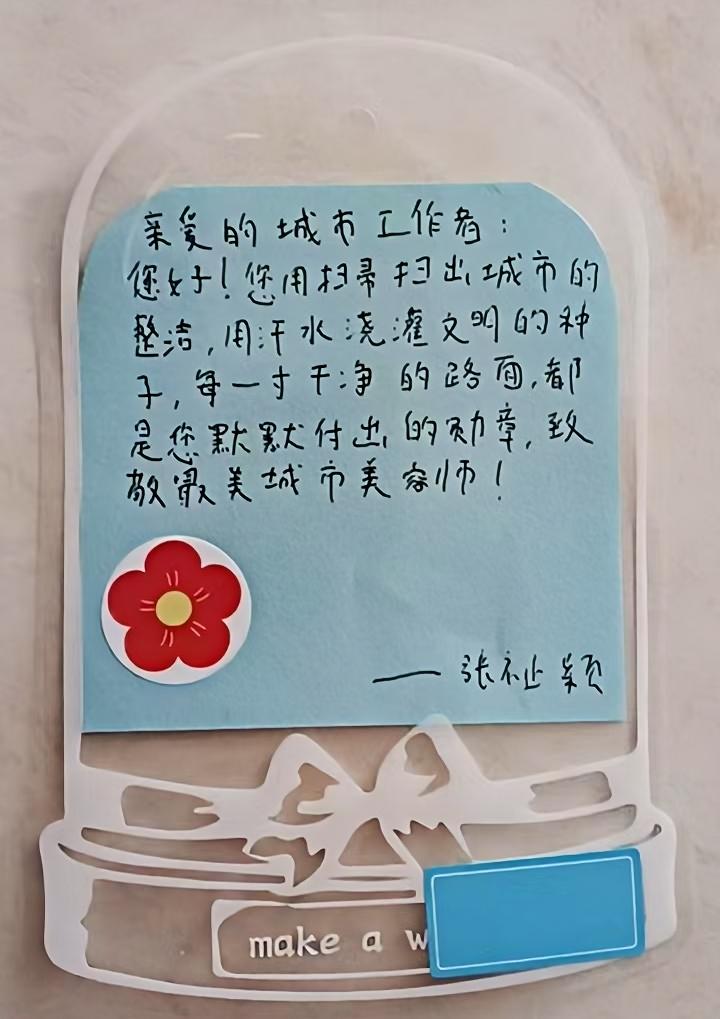 亲爱的城市工作者：
您好！您用扫帚扫出城市的
整洁，用汗水浇灌文明的种
子，每一寸干净的路面，都
是您默默付出的勋章，致
敬最美城市美容师！
——张祉颖
make a w